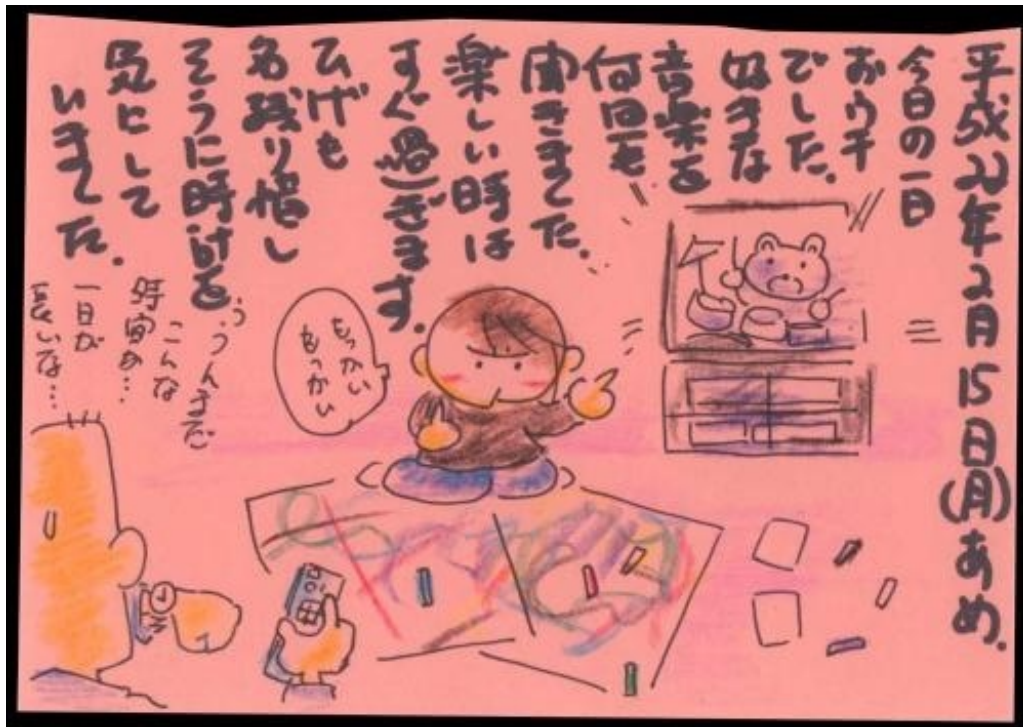 平成22年2月15日(月)あめ.
今日の一日
おウチ
でした.
好きな
音楽を
何回も
聞きました.
楽しい時は
すぐ過ぎます.
ひげも
名残り惜し
そうに時計を
気にして
いました.
もっかい
もっかい
う、うんまだ
こんな
時間か…
一日が
長いな…